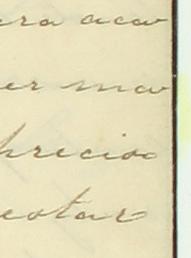 era aca
er ma
preciso
estar